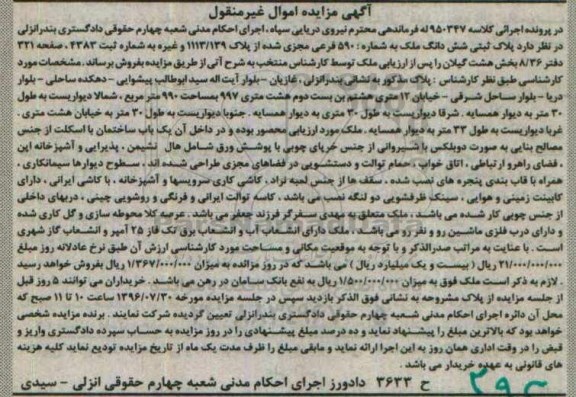 آگهی مزایده اموال غیرمنقول
در پرونده اجرائی کلاسه ۹۵۰۳۴۷ له فرماندهی محترم نیروی دریایی سپاه، اجرای احکام مدنی شعبه چهارم حقوقی دادگستری بندرانزلی
در نظر دارد پلاک ثبتی شش دانگ ملک به شماره : ۵۹۰ فرعی مجزی شده از پلاک ۱۱۱۳/۱۳۹ و غیره به شماره ثبت ۴۳۸۳ ، صفحه ۳۲۱
دفتر ۸/۳۶ بخش هشت گیلان را پس از ارزیابی ملک توسط کارشناس منتخب به شرح آتی از طریق مزایده بفروش برساند. مشخصات مورد
کارشناسی طبق نظر کارشناس : پلاک مذکور به نشانی بندرانزلی ، غازیان – بلوار آیت اله سید ابوطالب پیشوایی – دهکده ساحلی – بلوار
دریا – بلوار ساحل شرقی – خیابان ۱۲ متری هشتم بن بست دوم هشت متری ۹۹۷ بمساحت ۹۹۰ متر مربع ، شمالا دیواریست به طول
۳۰ متر به دیوار همسایه . شرقا دیواریست به طول ۳۰ متری به دیوار همسایه . جنوبا دیواریست به طول ۳۰ متر به خیابان هشت متری .
غربا دیواریست به طول ۳۳ متر به دیوار همسایه . ملک مورد ارزیابی محصور بوده و در داخل آن یک باب ساختمان با اسکلت از جنس
مصالح بنایی به صورت دوبلکس با شیروانی از جنس خرپای چوبی با پوشش ورق شامل هال نشیمن ، پذیرایی و آشپزخانه اپن
، فضای راهرو ارتباطی ، اتاق خواب ، حمام توالت و دستشویی در فضاهای مجزی طراحی شده اند . سطوح دیوارها سیمانکاری ،
همراه با قاب بندی پنجره های نصب شده . سقف ها از جنس لمبه نراد . کاشی کاری سرویسها و آشپزخانه ، با کاشی ایرانی ، دارای
کابینت زمینی و هوایی ، سینک ظرفشویی دو لنگه نصب می باشد . کاسه توالت ایرانی و فرنگی و روشویی چینی ، دربهای داخلی
از جنس چوبی کار شده می باشند . ملک متعلق به مهدی مسفرگر فرزند جعفر می باشد . عرصه کلا محوطه سازی و گل کاری شده
و دارای درب فلزی ماشین رو و نفر رو می باشد . ملک دارای انشعاب آب و انشعاب برق تک فاز ۲۵ آمپر و انشعاب گاز شهری
است . با عنایت به مراتب صدرالذکر و با توجه به موقعیت مکانی و مساحت مورد کارشناسی ارزش آن طبق نرخ عادلانه روز مبلغ
۲۱/۰۰۰/۰۰۰/۰۰۰ ریال ( بیست و یک میلیارد ریال ) می باشد که در روز مزایده به میزان ۱/۳۶۷/۰۰۰/۰۰۰ ریال بفروش خواهد رسید
. لازم به ذکر است ملک فوق به میزان ۱/۵۰۰/۰۰۰/۰۰۰ ریال به نفع بانک سامان در رهن می باشد . خریداران می توانند ۵ روز قبل
از جلسه مزایده از پلاک مشروحه به نشانی فوق الذکر بازدید سپس در جلسه مزایده مورخه ۱۳۹۶/۰۷/۳۰ ساعت ۱۰ تا ۱۱ صبح که
محل آن دائره اجرای احکام مدنی شعبه چهارم حقوقی دادگستری بندرانزلی تعیین گردیده شرکت نمایند . برنده مزایده شخصی
خواهد بود که بالاترین مبلغ را پیشنهاد نماید و ده درصد مبلغ پیشنهادی را در روز مزایده به حساب سپرده دادگستری واریز و
قبض را در وقت اداری همان روز به این اجرا ارائه نماید و مابقی مبلغ را ظرف مدت یک ماه از تاریخ مزایده تودیع نماید کلیه هزینه
های قانونی به عهده خریدار می باشد .
ح ۳۶۳۳ دادورز اجرای احکام مدنی شعبه چهارم حقوقی انزلی – سیدی